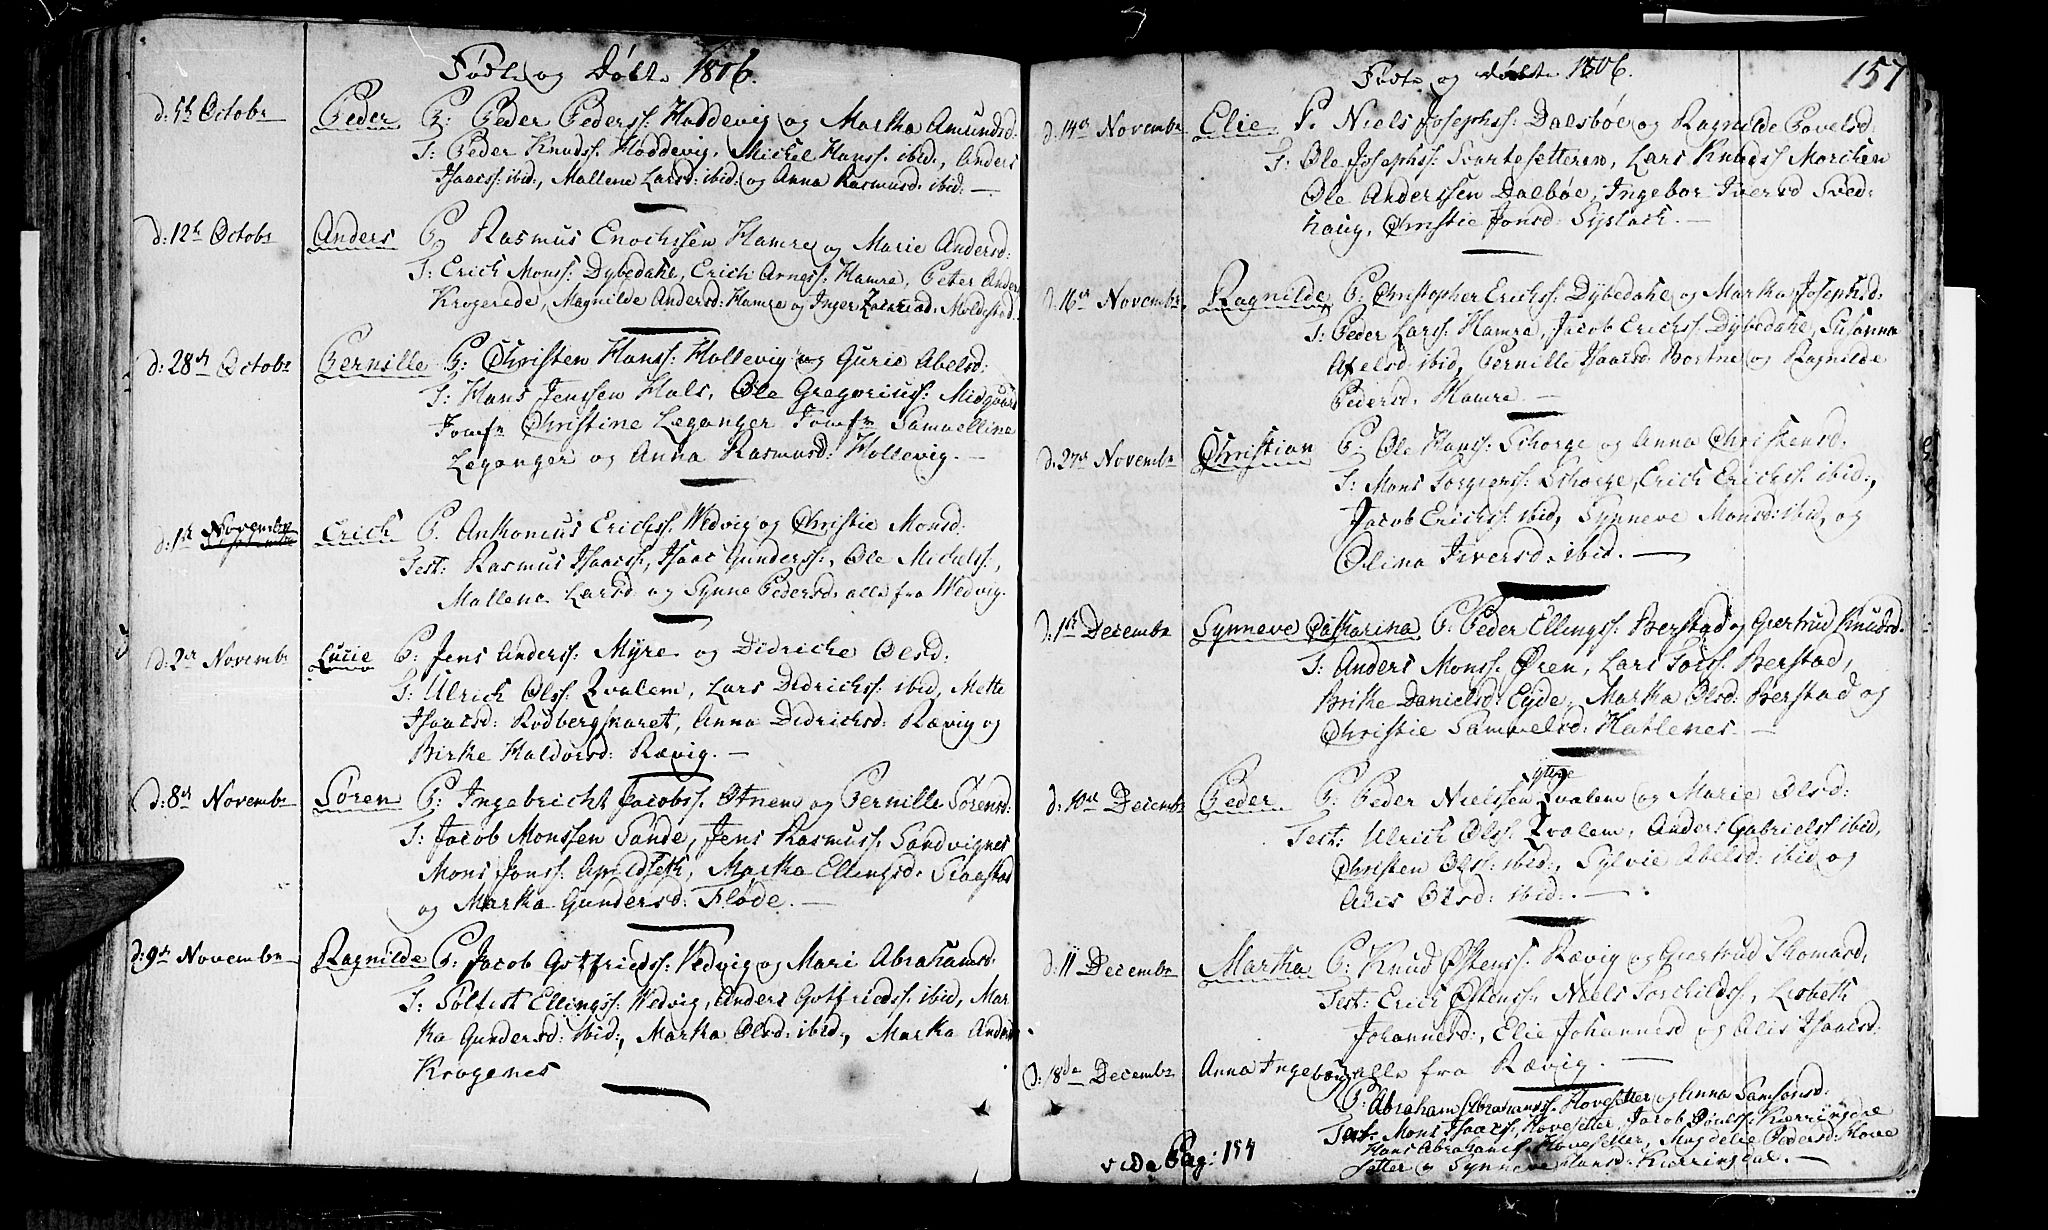 Födte og Döbte 1806.
d: 5t Octobr Peder P: Peder Peders: Hoddevig og Martha Amundsd:
T: Peder Knuds: Hoddevig, Michel Hans: ibid:, Anders
Isaacs: ibid:, Mallene Larsd: ibid: og Anna Rasmusd: ibid: —
d: 12t Octobr Anders P: Rasmus Enochssen Hamre og Marie Andersd:
T: Erich Mons: Dybedahl, Erich Arnes: Hamre, Peter Anders
Magnilde Andersd: Hamre og Inger Moldestad.
d: 28d Octobr Pernille P: Christen Hans: Hollevig og Gurie Abelsd:
T: Hans Jenssen Hals, Ole Gregorius: Midgaard
Jomfr Christine Leganger Jomfr Samuelline
Leganger og Anna Rasmusd: Hollevig. —
d: 1t Novembr Erich P. Anthonius Erichs: Wedvig og Christie Monsd:
Test: Rasmus Isaacs:, Isaac Gunders:, Ole Michels:,
Mallena Larsd og Synne Pedersd. alle fra Wedvig.
d: 2n Novembr Lucie P: Jens Anders: Myre og Didriche Olsd:
T: Ulrich Ols: Qvalem, Lars Didrichs: ibid, Mette
Isaacsd: Rödbergskaret, Anna Didrichsd: Rævig og
Birthe Haldorsd: Rævig. —
d: 8d Novembr Sören P: Ingebricht Jacobs. Otnem og Pernille Sörensd:
T: Jacob Monssen Sande, Jens Rasmus: Sandvignes
Mons Jons: Apildseth, Martha Ellingsd:
og Martha Gundersd: Flöde. —
d: 9d Novembr Ragnilde P: Jacob Gotfrieds: Vedvig og Mari Abrahamsd,
T: Soltist Ellings: Wedvig, Anders Gotfrieds: ibid, Mar
tha Gundersd: ibid:, Martha Olsd: ibid:, Martha Anders
Krogenes
Födte og döbte 1806.
157
d: 14d Novembr Elie P. Niels Josephs: Dalsböe og Ragnilde Povelsd:
T: Ole Josephs: Svartesetteren, Lars Knuds: Morchen
Ole Anderssen Dalböe, Ingebor Iversd Sved-
haug, Christie Jonsd: Systach. —
d: 16d Novembr Ragnilde P: Christopher Erichs: Dybedahl og Martha Josephsd:
T: Peder Lars: Hamre, Jacob Erichs: Dybedahl, Susanna
Axelsd: ibid, Pernille Isaacsd Bortne og Ragnilde
Pedersd. Hamre. —
d: 27d Novembr Christian P: Ole Hans: Schorge og Anna Christensd.
T: Mons Torgiers: Schorge, Erich Erichs: ibid:,
Jacob Erichs: ibid, Synneve Monsd: ibid, og
Olina Iversd. ibid. —
d: 1t Decembr Synneve Catharina P: Peder Ellings: Berstad og Giertrud Knudsd.
T: Anders Mons: Ören, Lars Berstad,
Brithe Danielsd: Eyde, Martha Olsd: Berstad og
Christie Samuelsd: Hatlenes. —
d: 10d Decembr Peder P: Peder Nielssen yttre Qvalem og Marie Olsd:
Test: Ulrich Ols: Qvalem, Anders Gabriels: ibid,
Christen Ols: ibid:, Sylvie Abelsd: ibid og
Alis Olsd: ibid:. —
d: 11 Decembr Martha P: Knud Östens: Rævig og Giertrud Thomasd,
Test: Erich Östens: Niels Torchilds:, Lisbeth
Johannesd:, Elie Johannesd og Alis Isaacsd:
alle fra Rævig. —
d: 18de Decembr Anna Ingeborg
P: Abraham Abrahams: Hovesetter og Anna Samsonsd:
Test: Mons Isaacs: Hovesetter, Jacob Kierringdal
Hans Abrahams: Hovesetter, Magdelie Pedersd: Hove
setter og Synneve Hansd: Kierringdal. —
vide Pag: 154